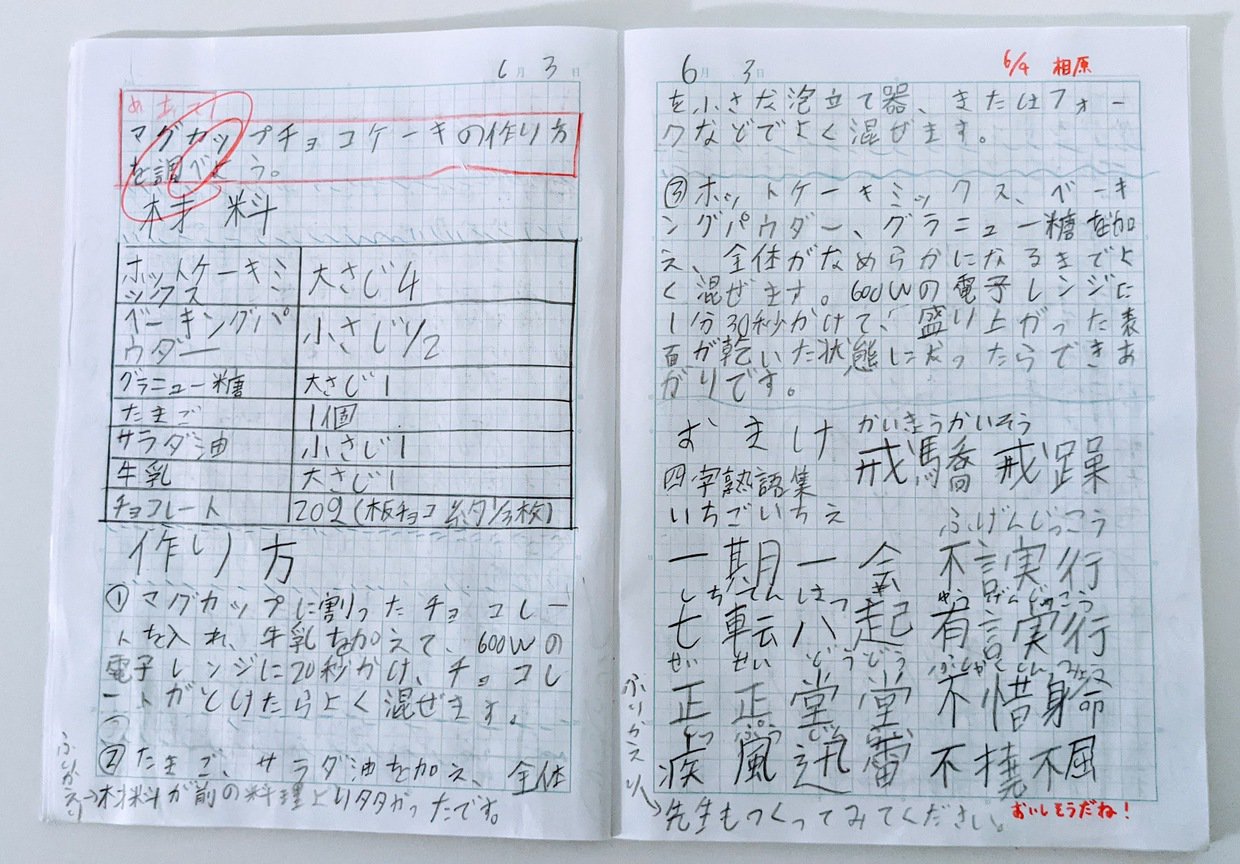 6月 3日
めあて
マグカップチョコケーキの作り方
を調べよう。
材料
ホットケーキミックス 大さじ4
ベーキングパウダー 小さじ1/2
グラニュー糖 大さじ1
たまご 1個
サラダ油 小さじ1
牛乳 大さじ1
チョコレート 20g(板チョコ約1/3枚)
作り方
①マグカップに割ったチョコレー
トを入れ、牛乳を加えて、600Wの
電子レンジに20秒かけ、チョコレ
ートがとけたらよく混ぜます。
②たまご、サラダ油を加え、全体
ふりかえり→材料が前の料理より多かったです。
6月 3日
6/4 相原
を小さな泡立て器、またはフォー
クなどでよく混ぜます。
③ホットケーキミックス、ベーキ
ングパウダー、グラニュー糖を加
え、全体がなめらかになるまでよ
く混ぜます。600Wの電子レンジに
1分30秒かけて、盛り上がった表
面が乾いた状態になったらできあ
がりです。
おまけ
四字熟語集
かいきょうかいそう
戒驕戒躁
いちごいちえ
一期一会
ふげんじっこう
不言実行
しちてんはっ
七転八起
ゆうげんじっこう
有言実行
せいせいどうどう
正正堂堂
ふしゃくしんみょう
不惜身命
疾風迅雷
不撓不屈
ふりかえり→先生もつくってみてください。
おいしそうだね!